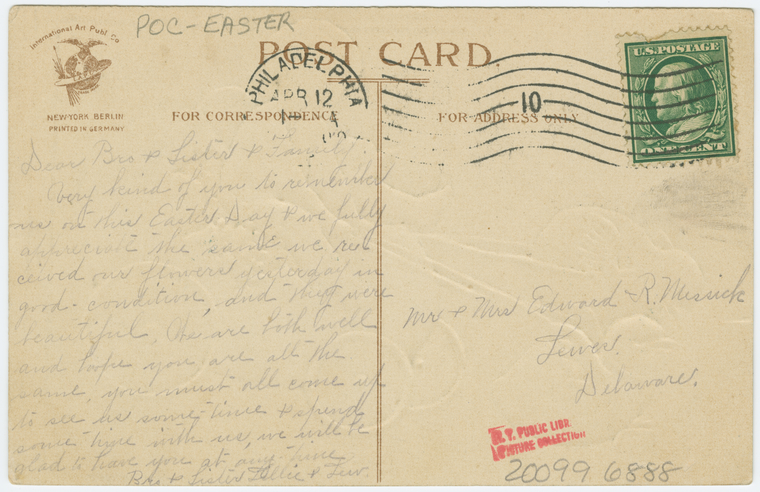 POC-EASTER
International Art Publ. Co.
NEW-YORK BERLIN
PRINTED IN GERMANY
POST CARD.
PHILADELPHIA
APR 12
10
U.S. POSTAGE
ONE CENT
FOR CORRESPONDENCE
FOR ADDRESS ONLY
Dear Bro & Sister & Family
Very kind of you to remember
us on this Easter Day & we fully
appreciate the same we re-
ceived our flowers yesterday in
good-condition, and they were
beautiful, We are both well
and hope you are all the
same, you must all come up
to see us some-time & spend
some time with us, we will be
glad to have you at any-time
Bro & Sister &
Mr & Mrs Edward R. Messick
Lewes
Delaware.
N. Y. PUBLIC LIBR.
PICTURE COLLECTION
20099 6888